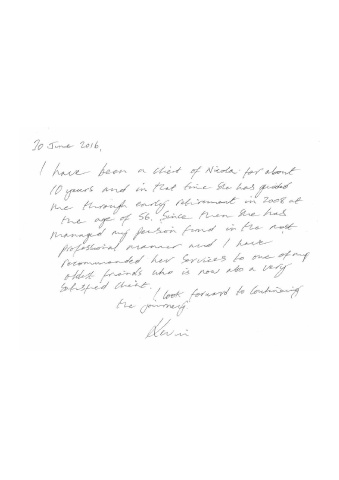 30 June 2016,
I have been a client of Nicola for about
10 years and in that time she has guided
me through early retirement in 2008 at
the age of 56. Since then she has
managed my pension fund in the most
professional manner and I have
recommended her services to one of my
oldest friends who is now also a very
satisfied client.
I look forward to continuing
the journey.
Kevin